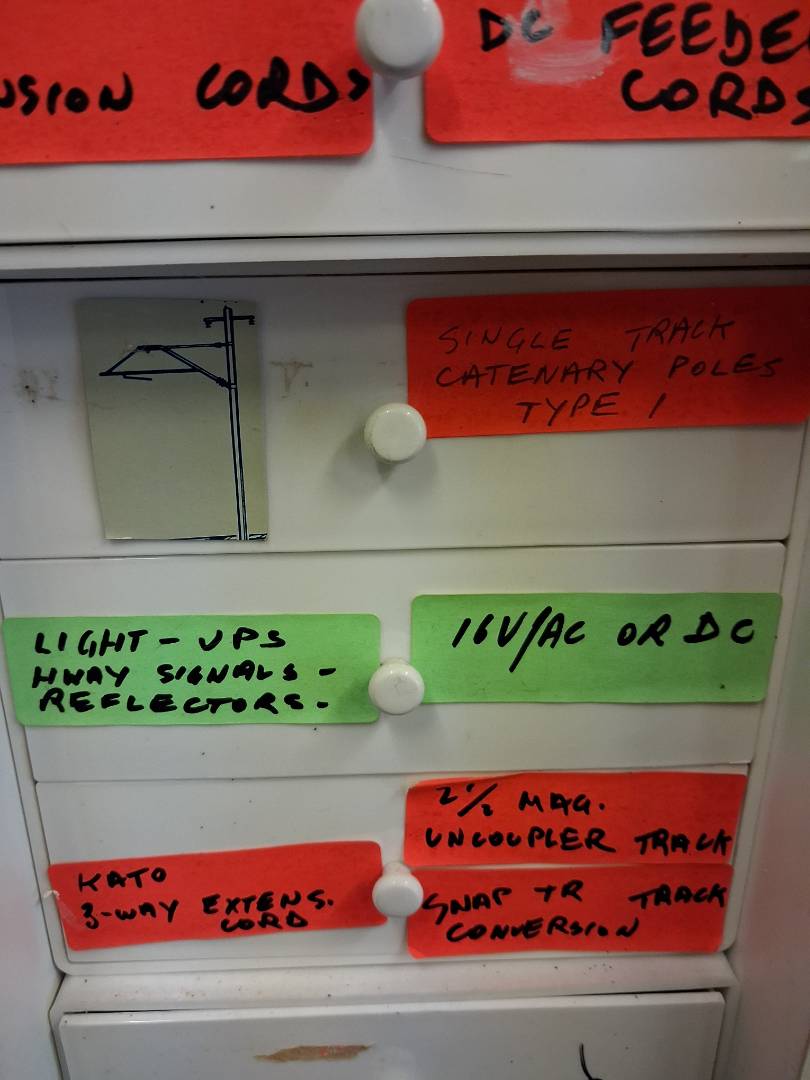 NSION CORDS
DC FEEDE
CORDS
SINGLE TRACK
CATENARY POLES
TYPE 1
LIGHT - UPS
HWAY SIGNALS -
REFLECTORS.
16V/AC OR DC
KATO
3-WAY EXTENS.
CORD
2 1/2 MAG.
UNCOUPLER TRACK
SNAP TR TRACK
CONVERSION